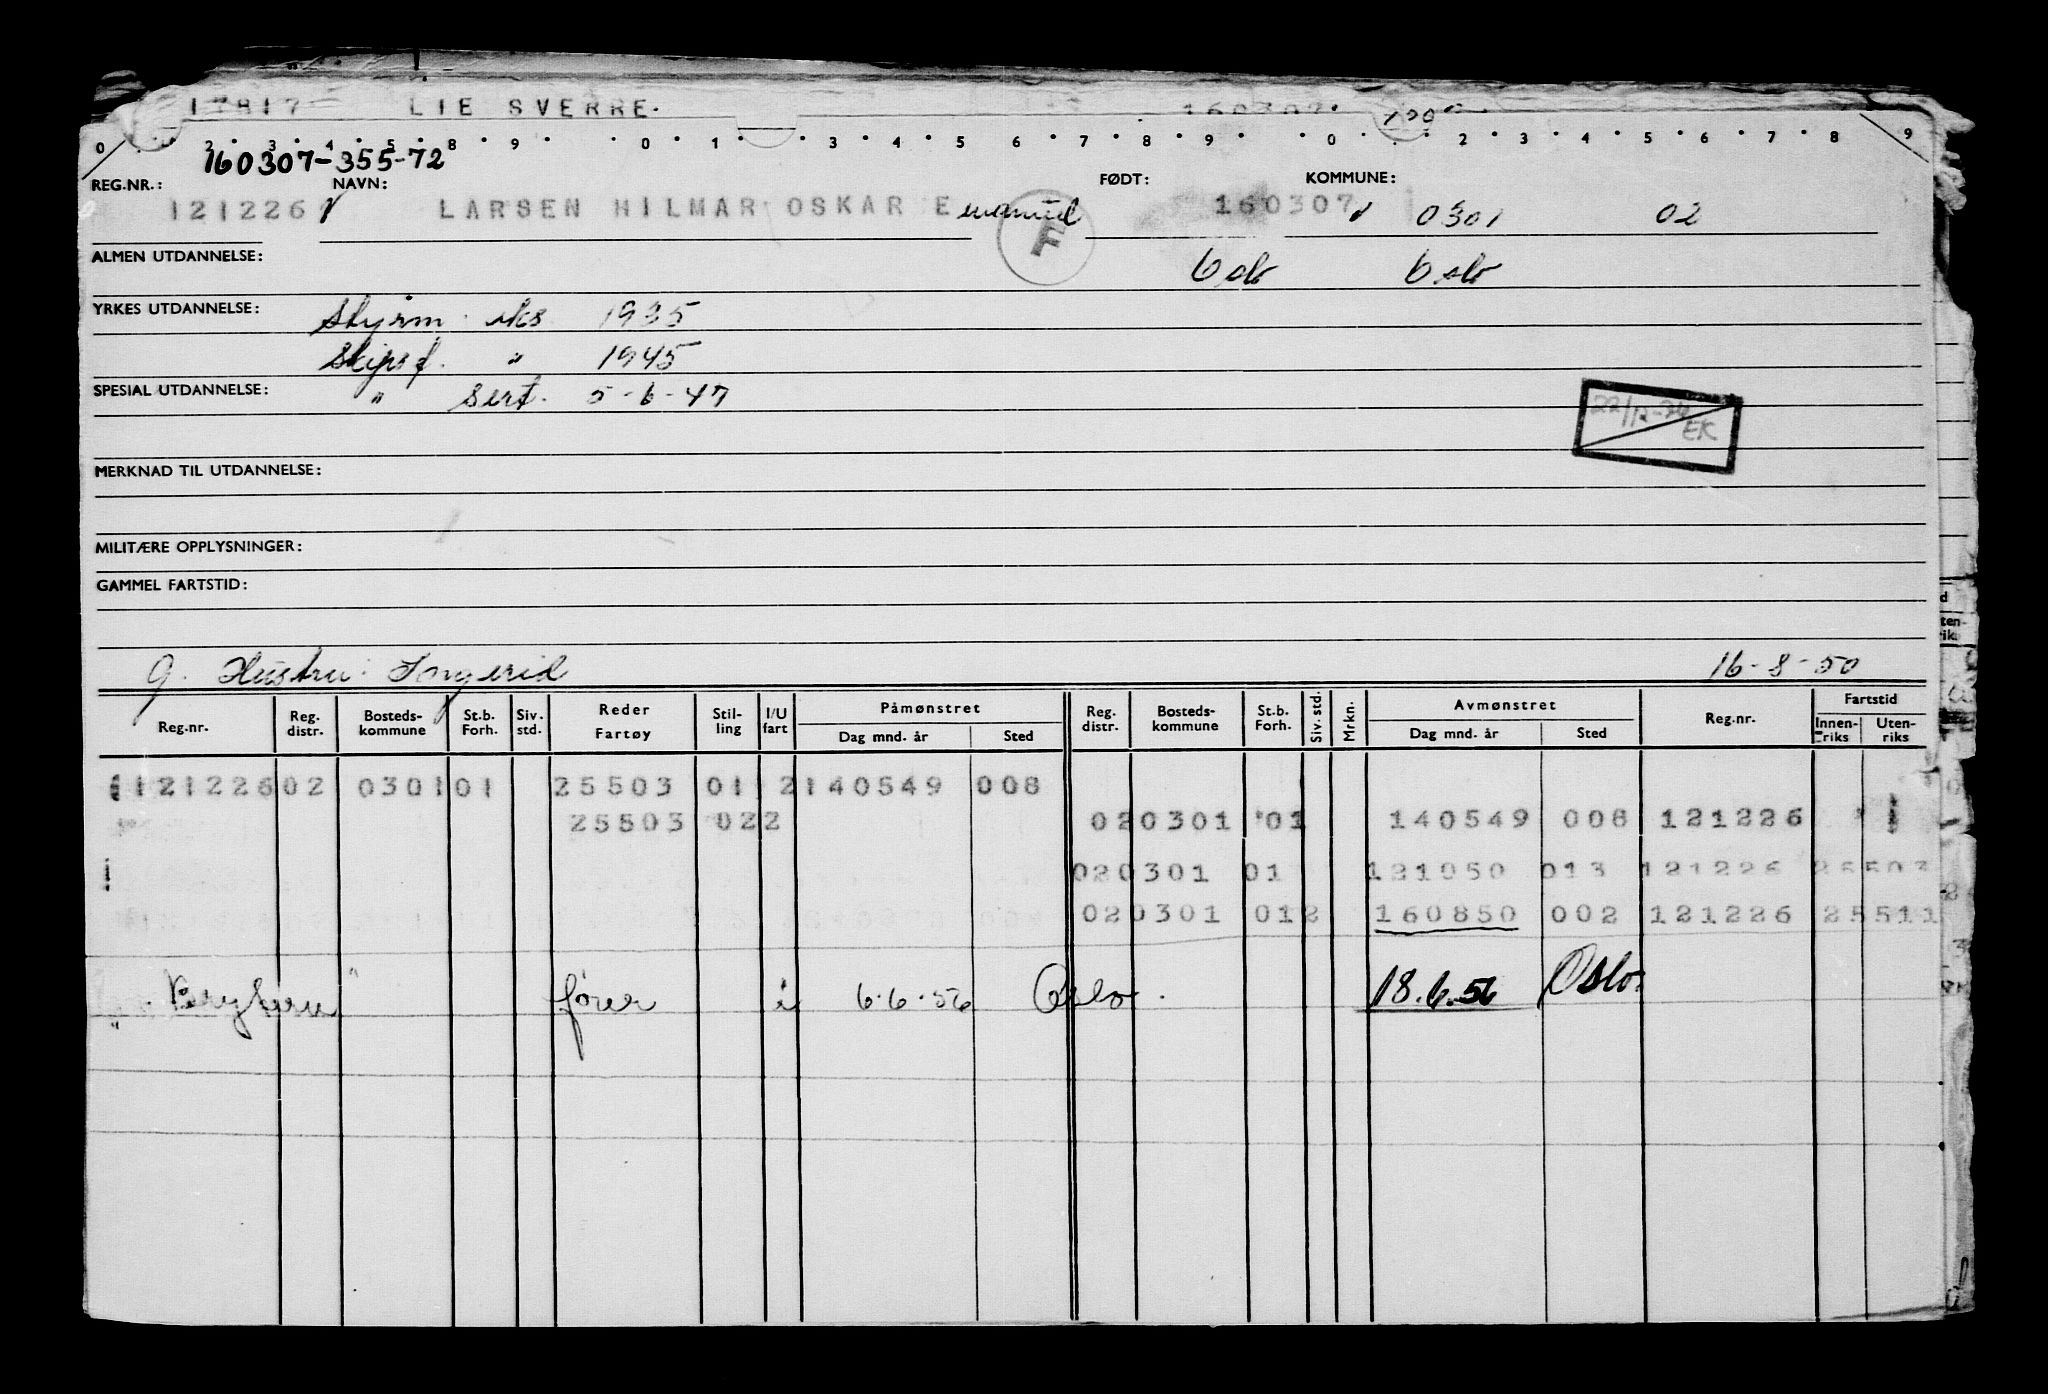 LIE SVERRE.
0 . 2 . 3 . 4 . 5 . 8 . 9 . 0 . 1 . 3 . 4 . 5 . 6 . 7 . 8 . 9 . 0 . 2 . 3 . 4 . 5 . 6 . 7 . 8 . 9
160307-355-72
REG.NR.: NAVN: FØDT: KOMMUNE:
121226 LARSEN HILMAR OSKAR Emanuel 160307 0301 02
F
ALMEN UTDANNELSE: Oslo Oslo
YRKES UTDANNELSE: Styrm. eks 1935
Skipsf. " 1945
SPESIAL UTDANNELSE: " Sert. 5-6-47
EK
MERKNAD TIL UTDANNELSE:
MILITÆRE OPPLYSNINGER:
GAMMEL FARTSTID:
G. Hustru: Ingerid 16-8-50
Reg.nr. Reg. distr. Bosteds- kommune St.b. Forh. Siv. std. Reder Fartøy Stil- ling I/U fart Påmønstret Dag mnd. år Sted Reg. distr. Bosteds- kommune St.b. Forh. Siv. std. Mrkn. Avmønstret Dag mnd. år Sted Reg.nr. Fartstid Innen- riks Uten- riks
121226 02 0301 01 25503 01 2 140549 008
25503 02 2 02 0301 01 140549 008 121226
02 0301 01 121050 013 121226 25503
02 0301 01 2 160850 002 121226 25511
fører i 6.6.56 Oslo. 18.6.56 Oslo.